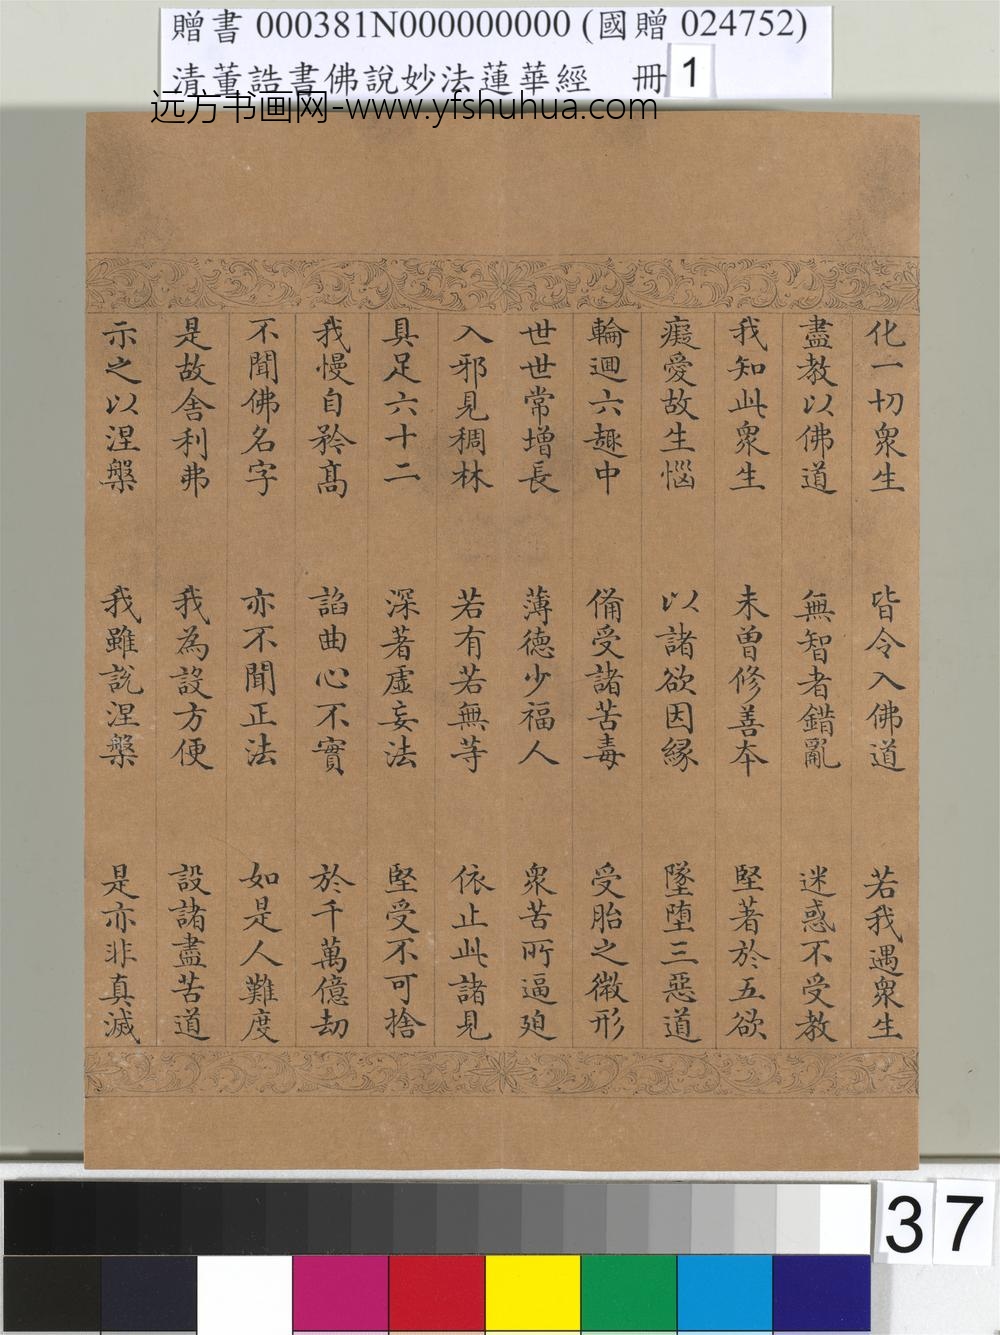 贈書 000381N000000000 (國贈 024752)
清董誥書佛說妙法蓮華經 冊 1
远方书画网-www.yfshuhua.com
化一切衆生 皆令入佛道 若我遇衆生
盡教以佛道 無智者錯亂 迷惑不受教
我知此衆生 未曾修善本 堅著於五欲
癡愛故生惱 以諸欲因緣 墜墮三惡道
輪迴六趣中 備受諸苦毒 受胎之微形
世世常增長 薄德少福人 衆苦所逼廹
入邪見稠林 若有若無等 依止此諸見
具足六十二 深著虛妄法 堅受不可捨
我慢自矜髙 諂曲心不實 於千萬億劫
不聞佛名字 亦不聞正法 如是人難度
是故舍利弗 我為設方便 設諸盡苦道
示之以涅槃 我雖說涅槃 是亦非真滅
37